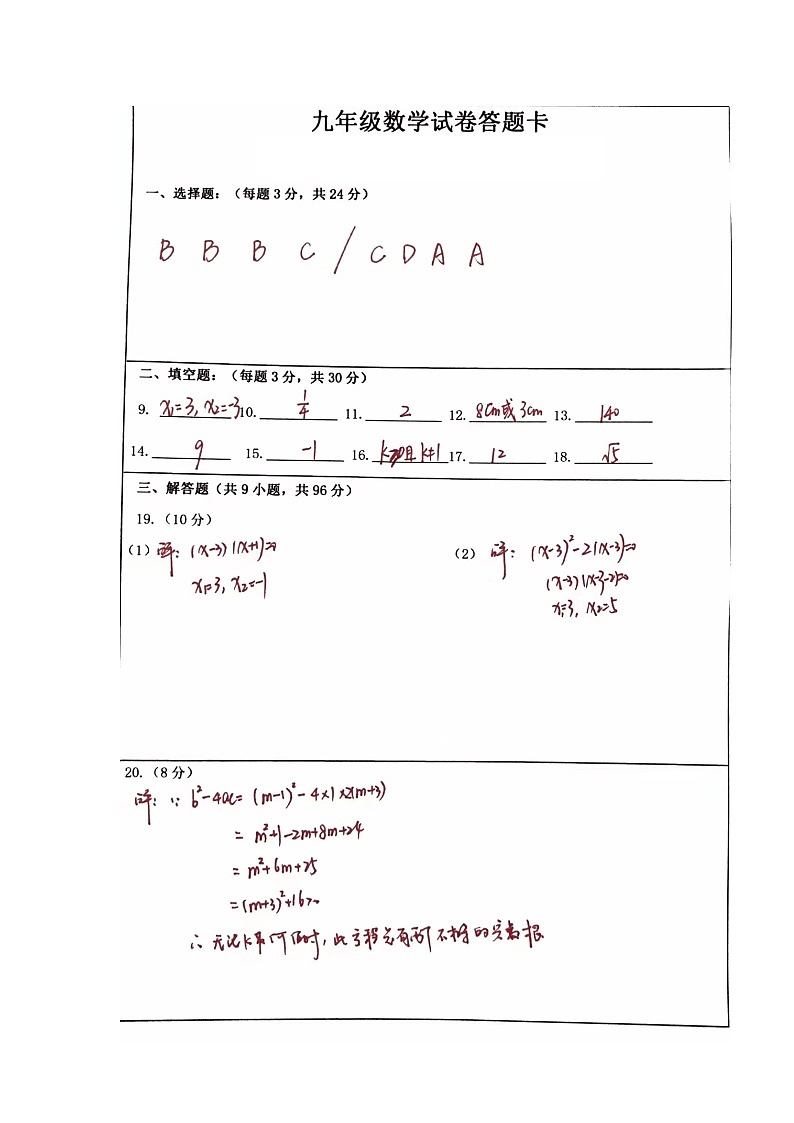 九年级数学试卷答题卡
一、选择题:(每题3分,共24分)
B B B C / C D A A
二、填空题:(每题3分,共30分)
9. x₁=3, x₂=-3 10. 1/4 11. 2 12. 8cm或3cm 13. 140
14. 9 15. -1 16. 且k≠1 17. 12 18. √5
三、解答题(共9小题,共96分)
19.(10分)
(1) 解:(x-3)(x+1)=0 (2) 解:(x-3)²-2(x-3)=0
x₁=3, x₂=-1 (x-3)(x-3-2)=0
x₁=3, x₂=5
20.(8分)
解:∵ b²-4ac=(m-1)²-4×1×2(m+3)
= m²+1-2m+8m+24
= m²+6m+25
=(m+3)²+16>0
∴ 无论k取何值时,此方程总有两个不相等的实数根